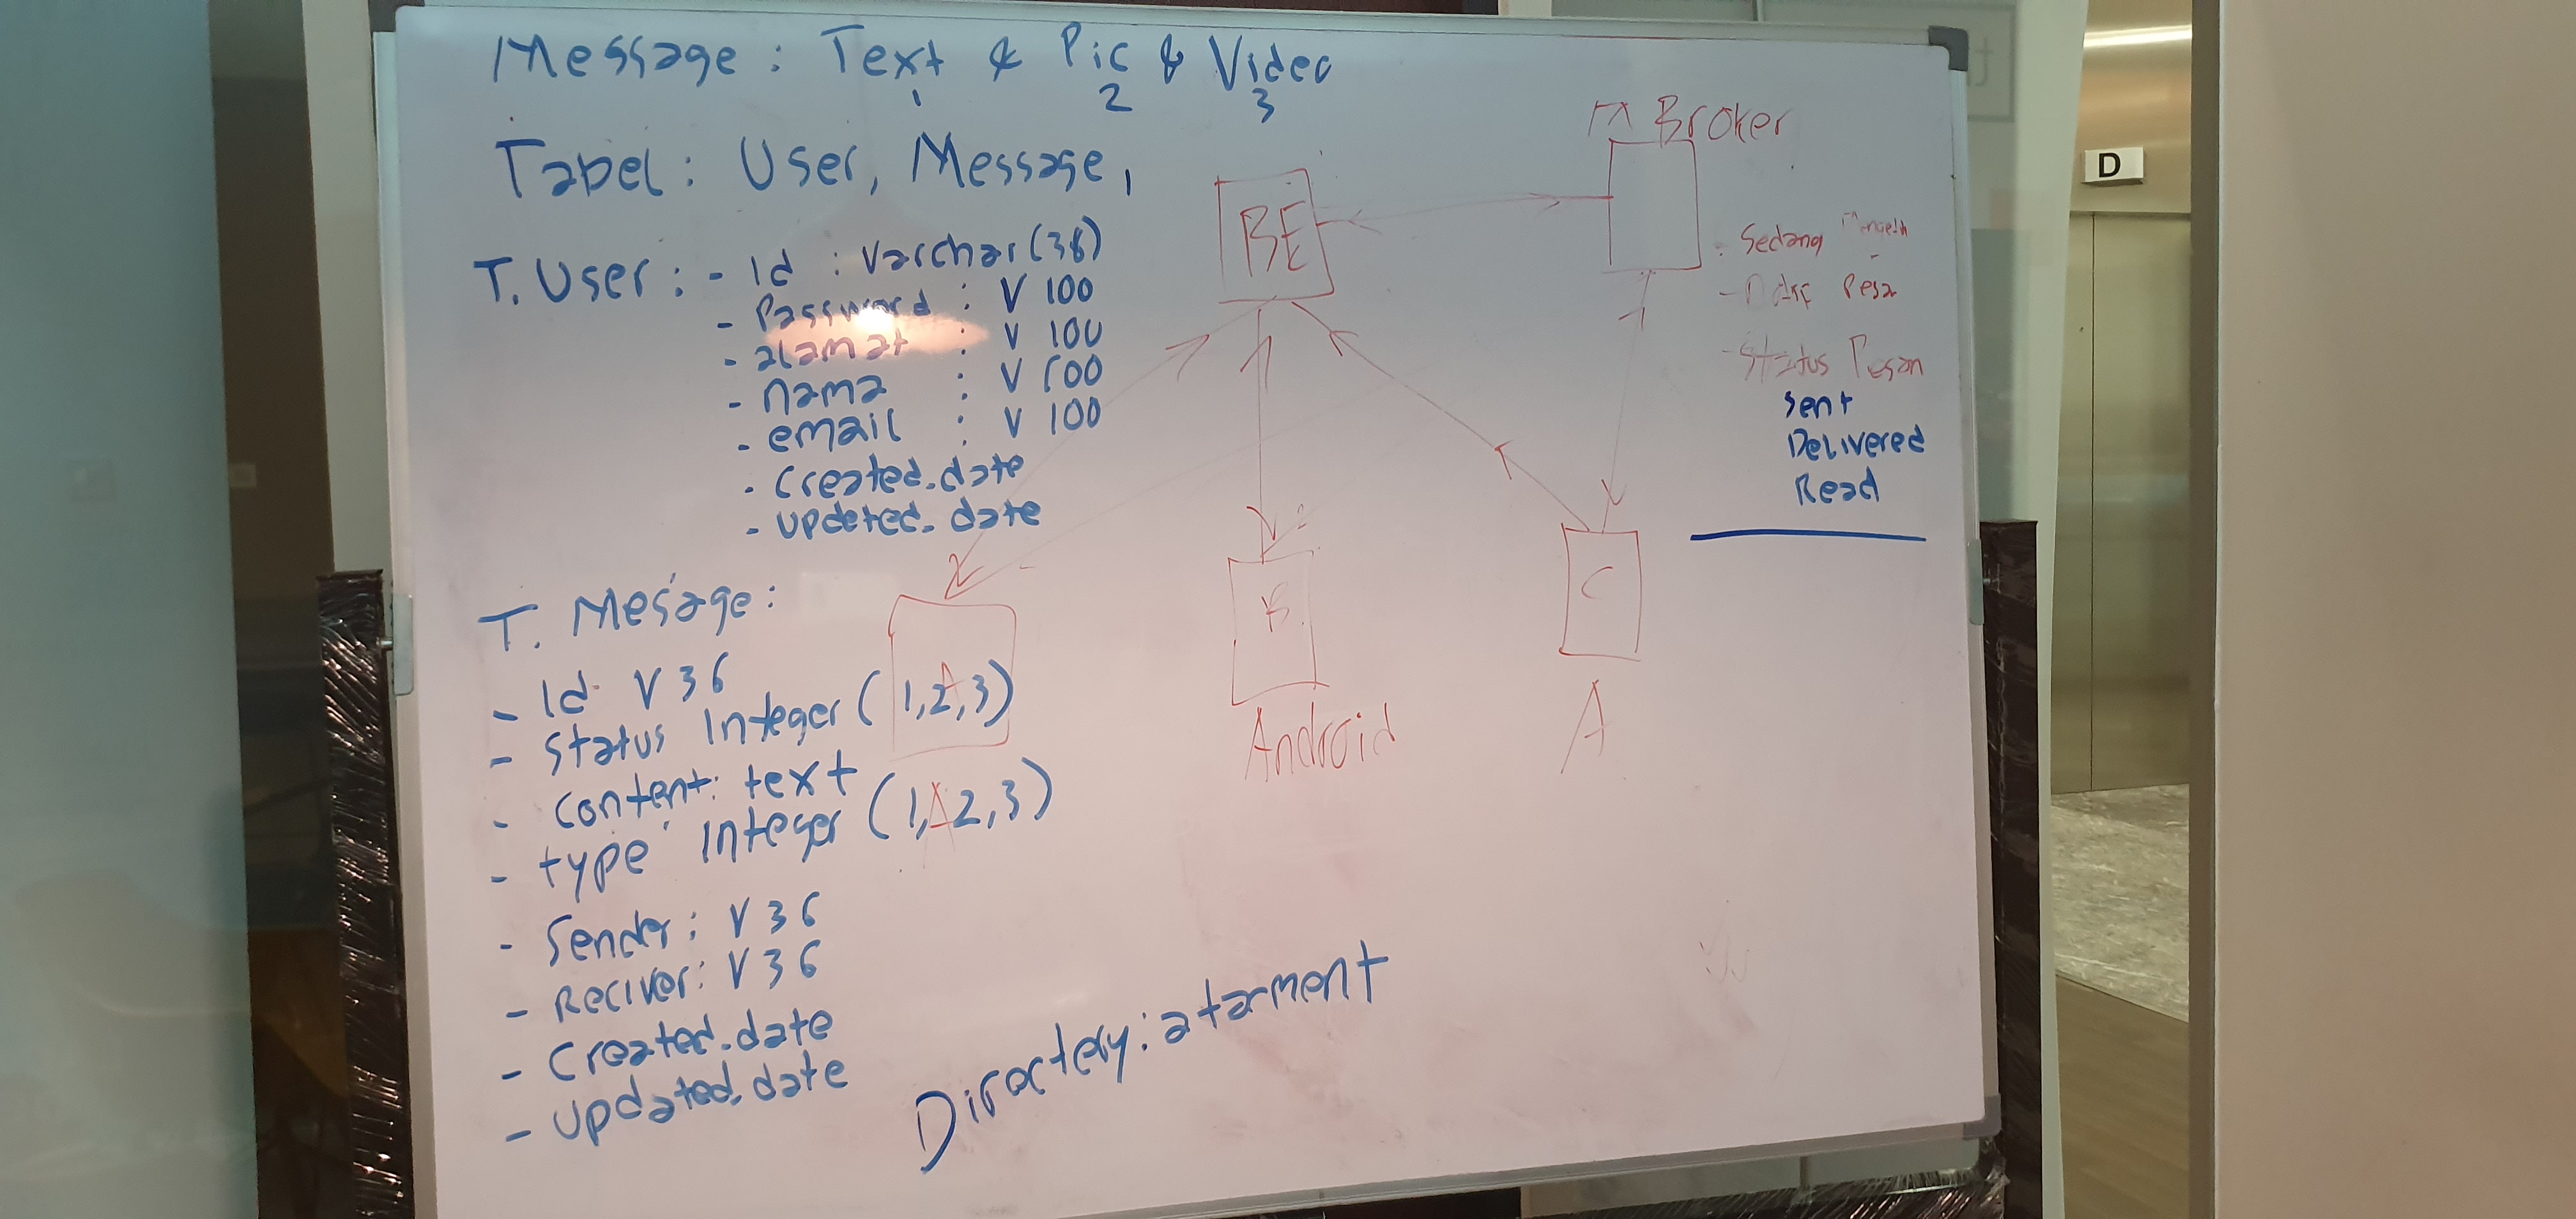 Message : Text & Pic & Video
1 2 3
Tabel : User, Message,
T. User : - Id : Varchar(36)
- Password : V 100
- alamat : V 100
- nama : V 100
- email : V 100
- Created_date
- Updeted_date
T. Mesage :
- Id V 36
- Status Integer (1,2,3)
- Content: text
- type Integer (1,2,3)
- Sender : V 36
- Reciver : V 36
- Created_date
- Updated_date
Directery : atacment
M Broker
BE
- Sedang
- Pesa
- Status Pesan
Sent
Delivered
Read
A
B
C
A
Android
A
D